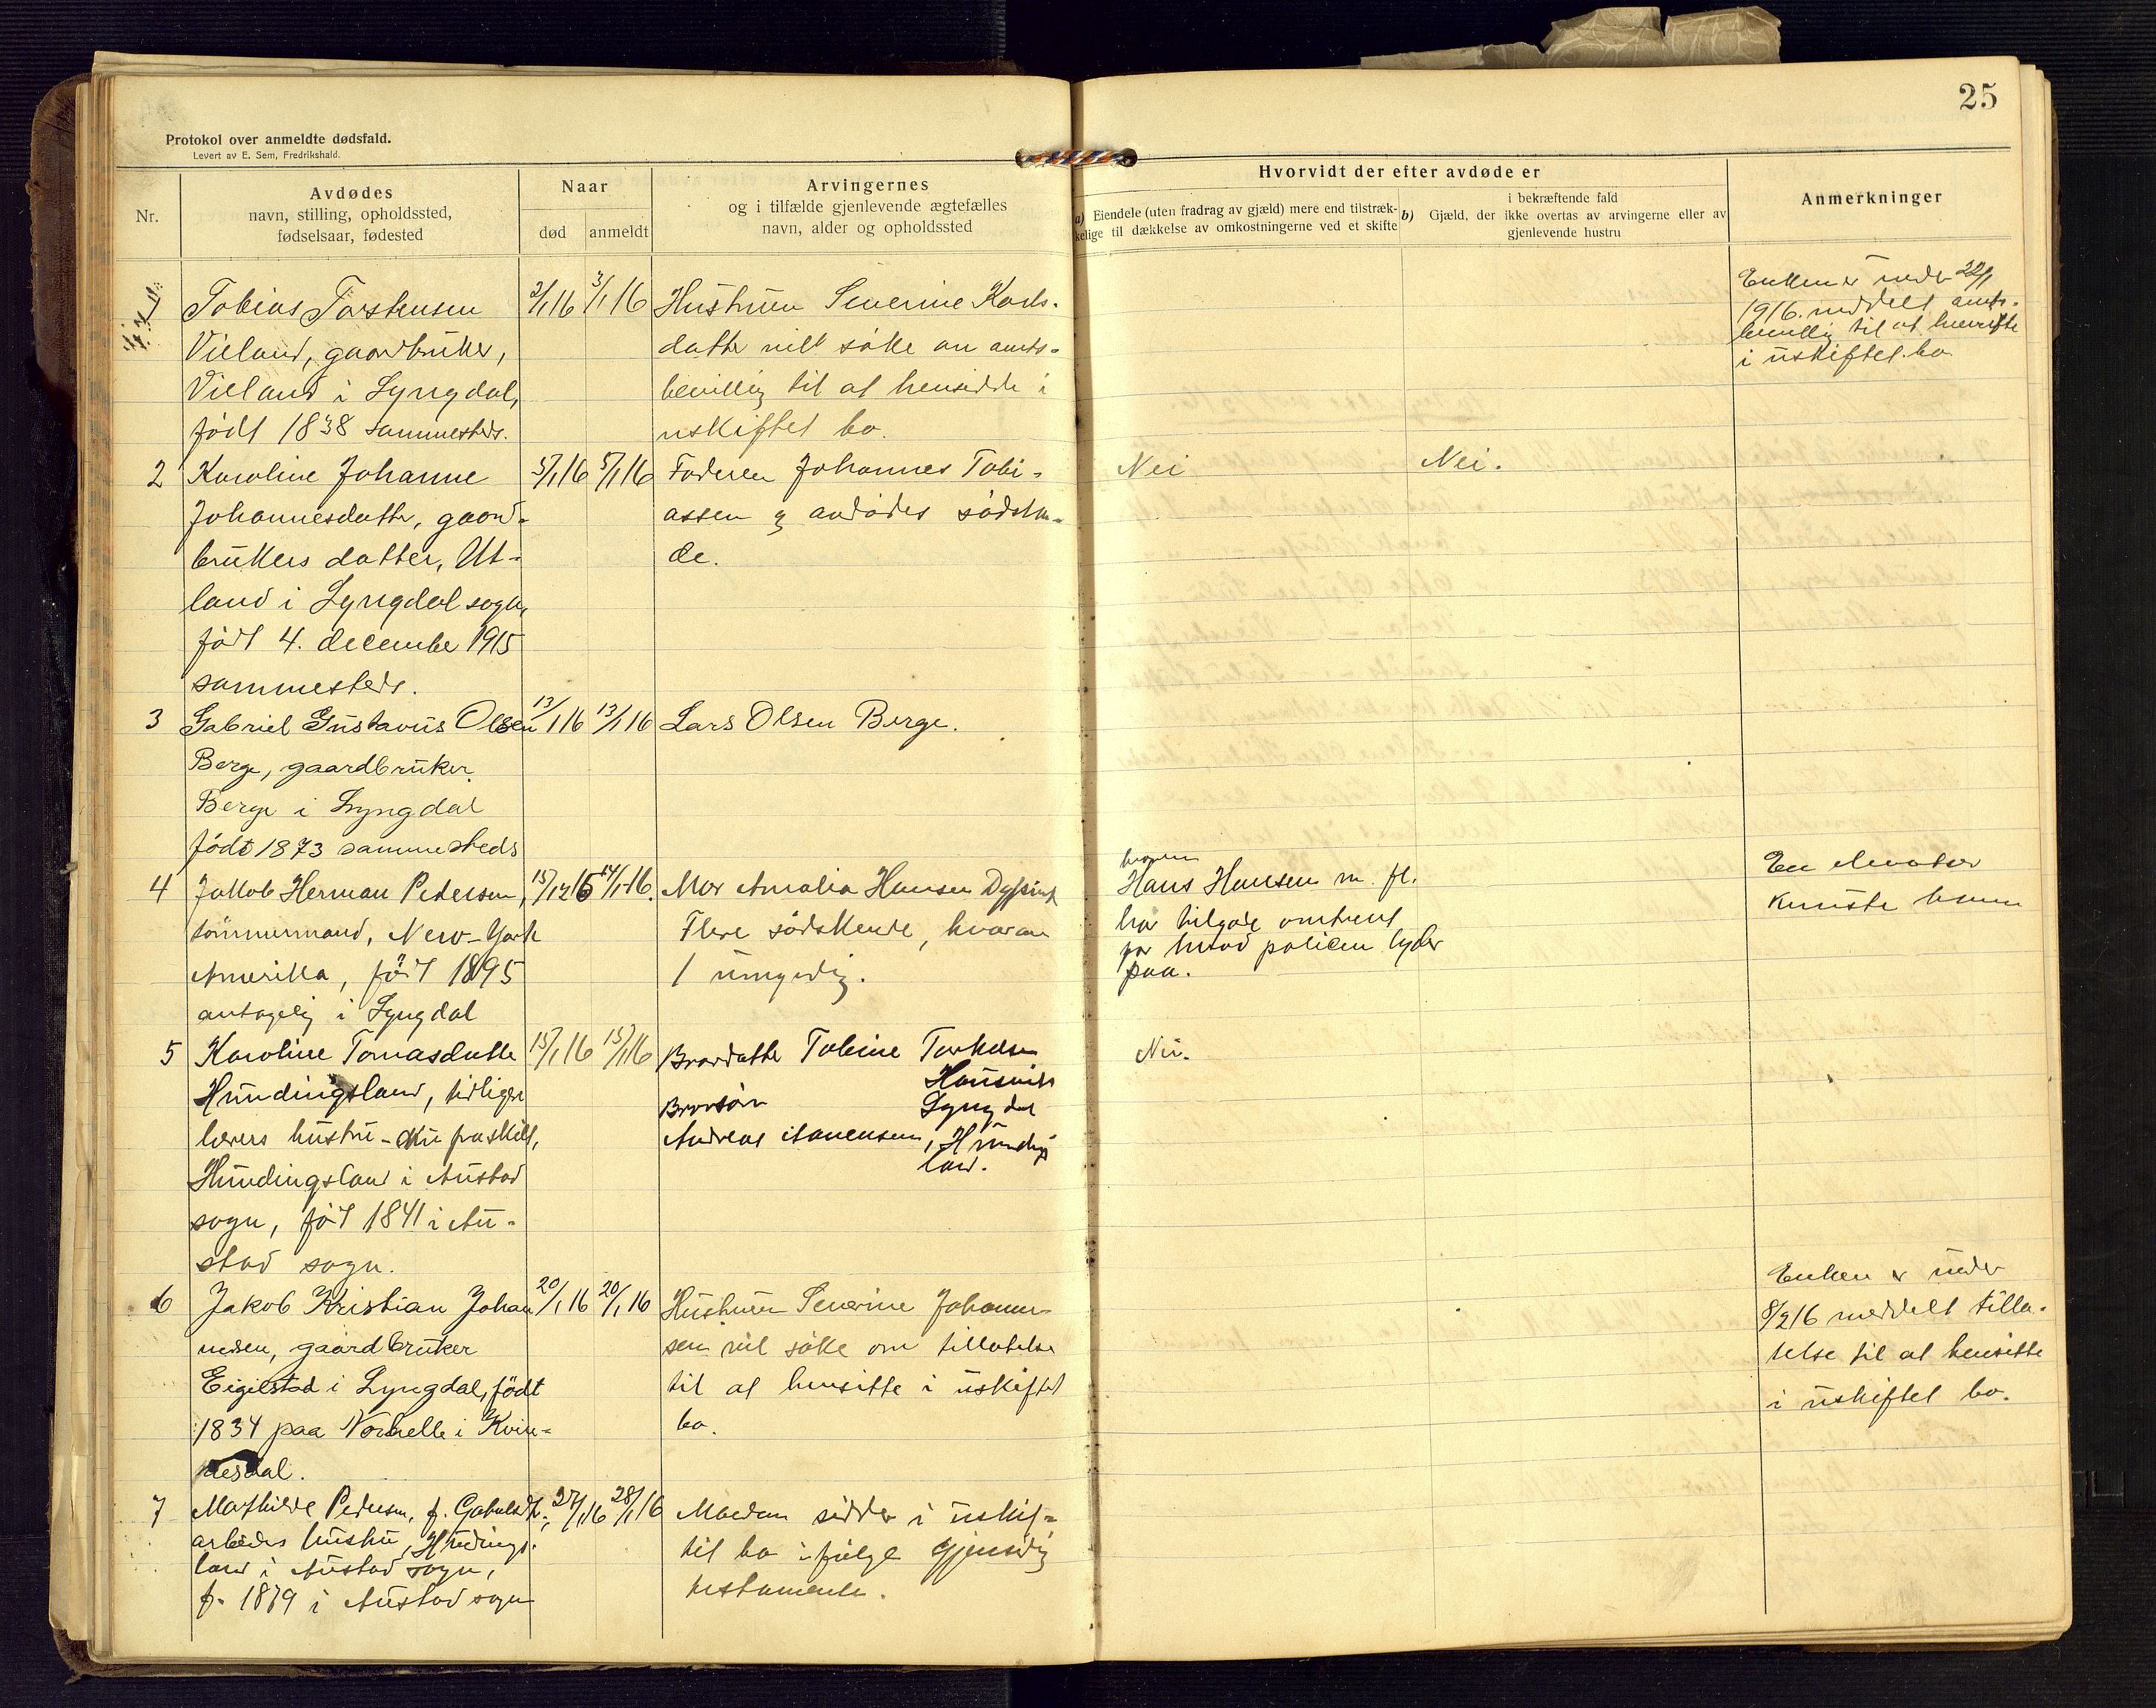 25
Protokol over anmeldte dødsfald.
Levert av E. Sem, Fredrikshald.
Nr.
Avdødes
navn, stilling, opholdssted,
fødselsaar, fødested
Naar
død
anmeldt
Arvingernes
og i tilfælde gjenlevende ægtefælles
navn, alder og opholdssted
Hvorvidt der efter avdøde er
a) Eiendele (uten fradrag av gjæld) mere end tilstræk-
kelige til dækkelse av omkostningerne ved et skifte
i bekræftende fald
b) Gjæld, der ikke overtas av arvingerne eller av
gjenlevende hustru
Anmerkninger
1
Tobias Torstensen
Vieland, gaardbruker,
Vieland i Lyngdal,
født 1838 sammesteds.
2/1 16
3/1 16
Hustruen Severine Karls-
datter vil søke om amts-
bevilling til at hensidde i
uskiftet bo.
Enken er under 22/1
1916 meddelt amts-
bevillig til at hensitte
i uskiftet bo.
2
Karoline Johanne
Johannesdatter, gaard-
brukers datter, Ut-
land i Lyngdal sogn,
født 4. december 1915
sammesteds.
5/1 16
5/1 16
Faderen Johannes Tobi-
assen og avdødes sødsken-
de.
Nei
Nei.
3
Gabriel Gustavus Olsen
Berge, gaardbruker
Berge i Lyngdal
født 1873 sammesteds
13/1 16
13/1 16
Lars Olsen Berge.
4
Jakob Herman Pedersen,
tømmermand, New-York
Amerika, født 1895
antagelig i Lyngdal
15/12 15
14/1 16.
Mor Amalia Hansen
Flere sødskende, hvorav
1 umyndig.
Hans Hansen m. fl.
har tilgode omtrent
for hvad policen lyder
paa.
En elevator
knuste ham
5
Karoline Tomasdatter
Hundingsland, tidligere
lærers hustru - nu fraskilt,
Hundingsland i Austad
sogn, født 1841 i Au-
stad sogn.
15/1 16
15/1 16
Brordatter Tobine Torkelsen
Lyngdal
Brorsøn
Andreas Hundings
land.
Nei.
6
Jakob Kristian Johan
nesen, gaardbruker
Eigilstad i Lyngdal, født
1834 paa i Kvin-
esdal.
20/1 16
20/1 16
Hustruen Severine Johannes-
sen vil søke om tillatelse
til at hensitte i uskiftet
bo.
Enken er under
8/2 16 meddelt tilla-
telse til at hensitte
i uskiftet bo.
7
Mathilde Pedersen, f. Gabrielsdtr.,
arbeiders hustru, Hundings-
land i Austad sogn,
f. 1879 i Austad sogn
27/1 16
28/1 16
Manden sidder i uskif-
tet bo ifølge gjensidig
testamente.